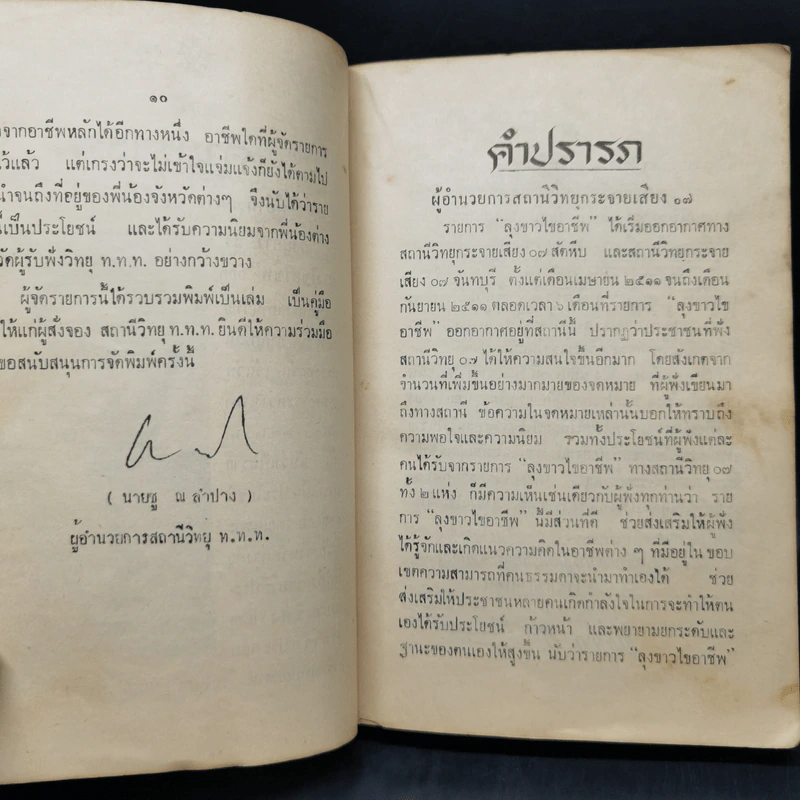 ๑๐
จากอาชีพหลักได้อีกทางหนึ่ง อาชีพใดที่ผู้จัดรายการ
ไว้แล้ว แต่เกรงว่าจะไม่เข้าใจแจ่มแจ้งก็ยังได้ตามไป
นำจนถึงที่อยู่ของพี่น้องจังหวัดต่างๆ จึงนับได้ว่าราย
นี้เป็นประโยชน์ และได้รับความนิยมจากพี่น้องต่าง
วัดผู้รับฟังวิทยุ ท.ท.ท. อย่างกว้างขวาง
ผู้จัดรายการนี้ได้รวบรวมพิมพ์เป็นเล่ม เป็นคู่มือ
ให้แก่ผู้สั่งจอง สถานีวิทยุ ท.ท.ท. ยินดีให้ความร่วมมือ
ขอสนับสนุนการจัดพิมพ์ครั้งนี้
( นายชู ณ ลำปาง )
ผู้อำนวยการสถานีวิทยุ ท.ท.ท.
คำปรารภ
ผู้อำนวยการสถานีวิทยุกระจายเสียง ๐๗
รายการ “ลุงขาวไขอาชีพ” ได้เริ่มออกอากาศทาง
สถานีวิทยุกระจายเสียง ๐๗ สัตหีบ และสถานีวิทยุกระจาย
เสียง ๐๗ จันทบุรี ตั้งแต่เดือนเมษายน ๒๕๑๑ จนถึงเดือน
กันยายน ๒๕๑๑ ตลอดเวลา ๖ เดือนที่รายการ “ลุงขาวไข
อาชีพ” ออกอากาศอยู่ที่สถานีนี้ ปรากฏว่าประชาชนที่ฟัง
สถานีวิทยุ ๐.๗ ได้ให้ความสนใจขึ้นอีกมาก โดยสังเกตจาก
จำนวนที่เพิ่มขึ้นอย่างมากมายของจดหมาย ที่ผู้ฟังเขียนมา
ถึงทางสถานี ข้อความในจดหมายเหล่านั้นบอกให้ทราบถึง
ความพอใจและความนิยม รวมทั้งประโยชน์ที่ผู้ฟังแต่ละ
คนได้รับจากรายการ “ลุงขาวไขอาชีพ” ทางสถานีวิทยุ ๐๗
ทั้ง ๒ แห่ง ก็มีความเห็นเช่นเดียวกับผู้ฟังทุกท่านว่า ราย
การ “ลุงขาวไขอาชีพ” นี้มีส่วนที่ดี ช่วยส่งเสริมให้ผู้ฟัง
ได้รู้จักและเกิดแนวความคิดในอาชีพต่าง ๆ ที่มีอยู่ใน ขอบ
เขตความสามารถที่คนธรรมดาจะนำมาทำเองได้ ช่วย
ส่งเสริมให้ประชาชนหลายคนเกิดกำลังใจในการจะทำให้ตน
เองได้รับประโยชน์ ก้าวหน้า และพยายามยกระดับและ
ฐานะของตนเองให้สูงขึ้น นับว่ารายการ “ลุงขาวไขอาชีพ”